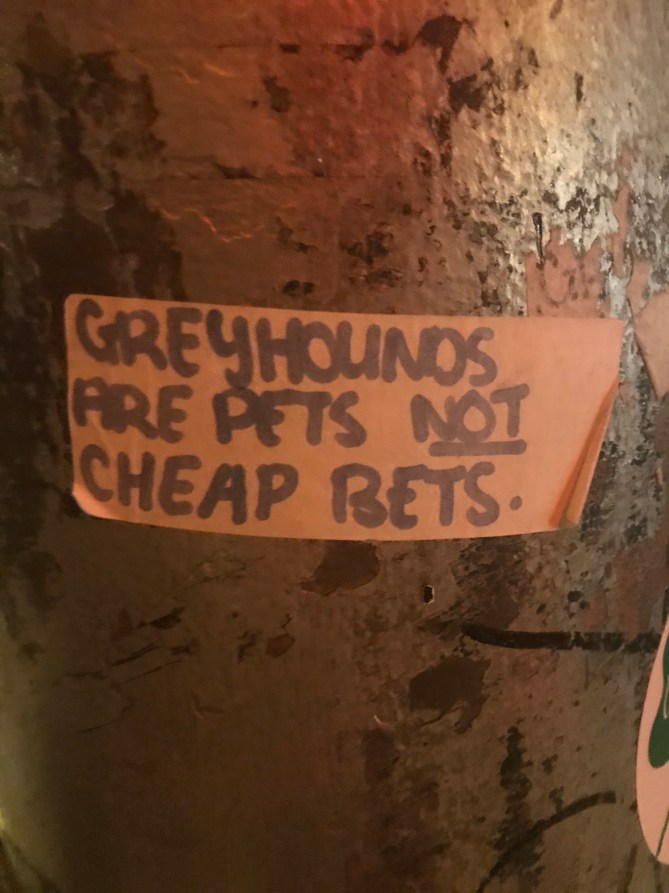 GREYHOUNDS
ARE PETS NOT
CHEAP BETS.